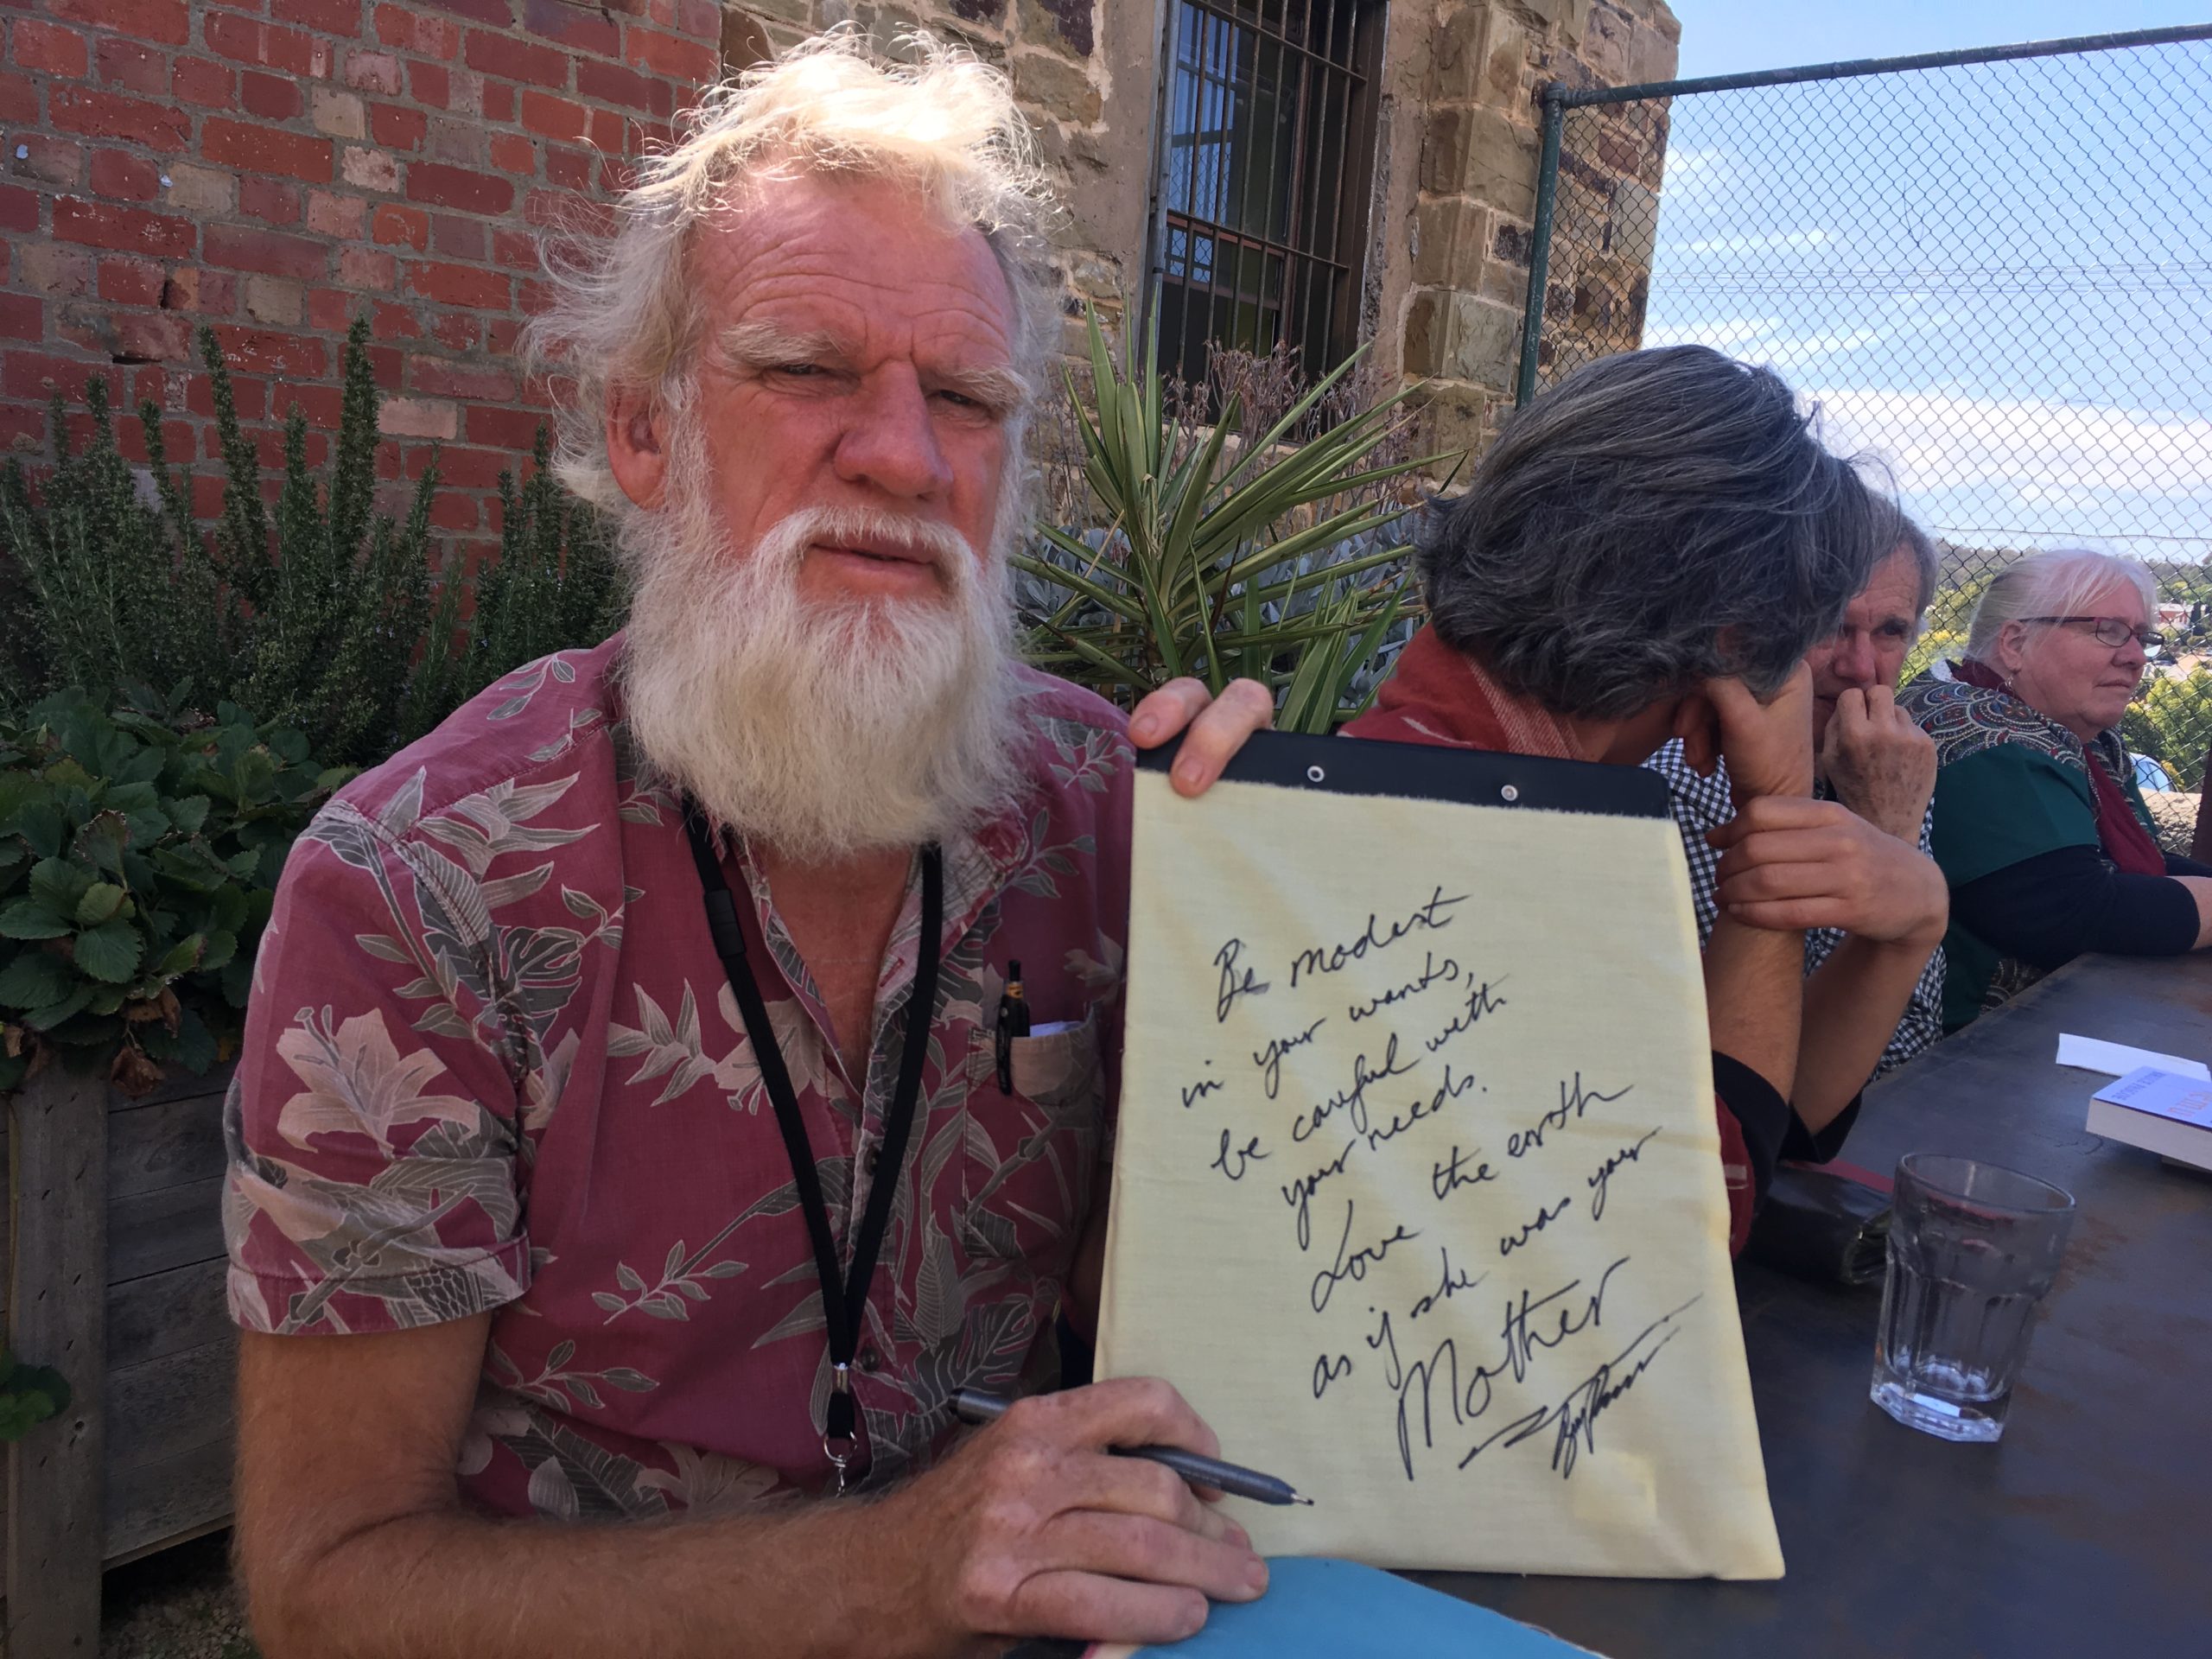 Be modest
in your wants,
be careful with
your needs.
Love the earth
as if she was your
Mother